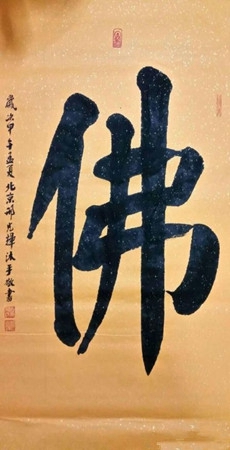 佛
歲次甲午孟夏北京邢光輝沐手敬書